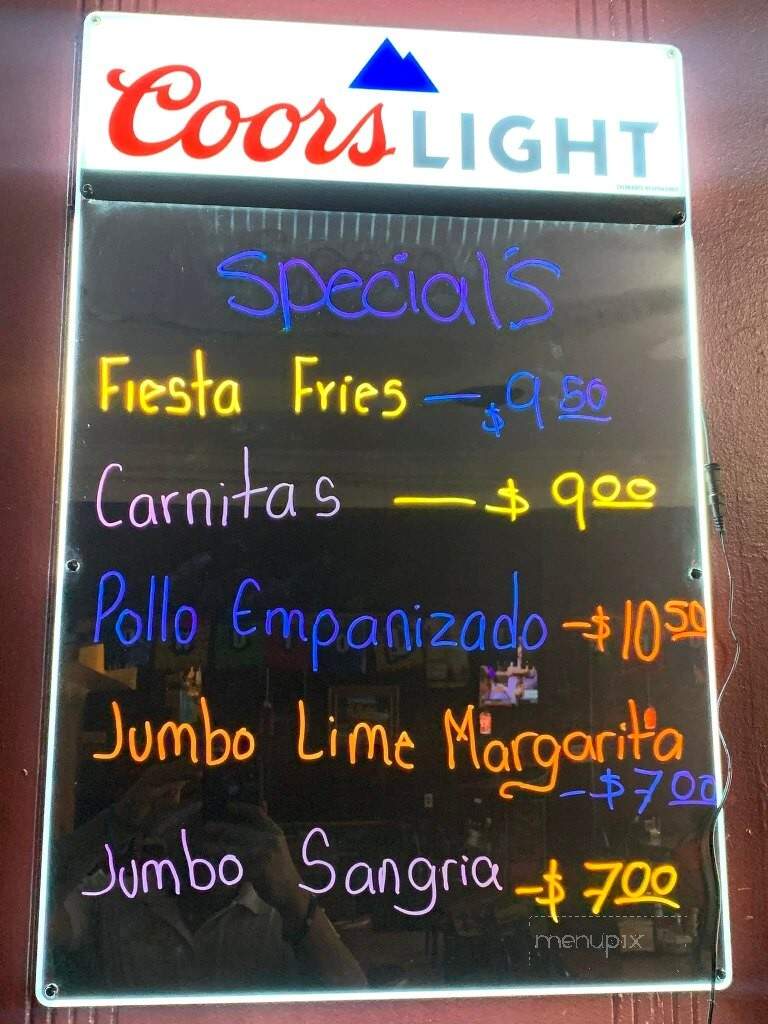 Coors LIGHT
Special's
Fiesta Fries — $9.50
Carnitas — $9.00
Pollo Empanizado - $10.50
Jumbo Lime Margarita
- $7.00
Jumbo Sangria - $7.00
menupix